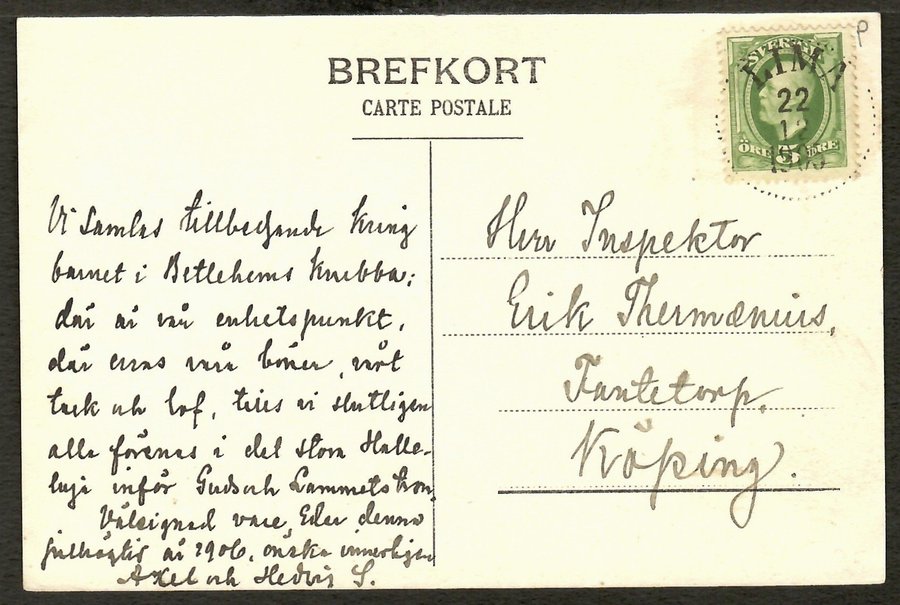 BREFKORT
CARTE POSTALE
SVERIGE
LIMA
22
12
ÖRE 5 ÖRE
P
Vi samlas tillbedjande kring
barnet i Betlehems krubba;
där är vår enhetspunkt,
där enas våra böner, vårt
tack och lof, till vi slutligen
alla förenas i det stora Halle-
luja inför Guds och Lammets tron.
Välsignad vare Eder denna
julhögtid år 1906, önska innerligen
Axel och Hedvig S.
Herr Inspektor
Erik Thermænius,
Fantetorp.
Köping.